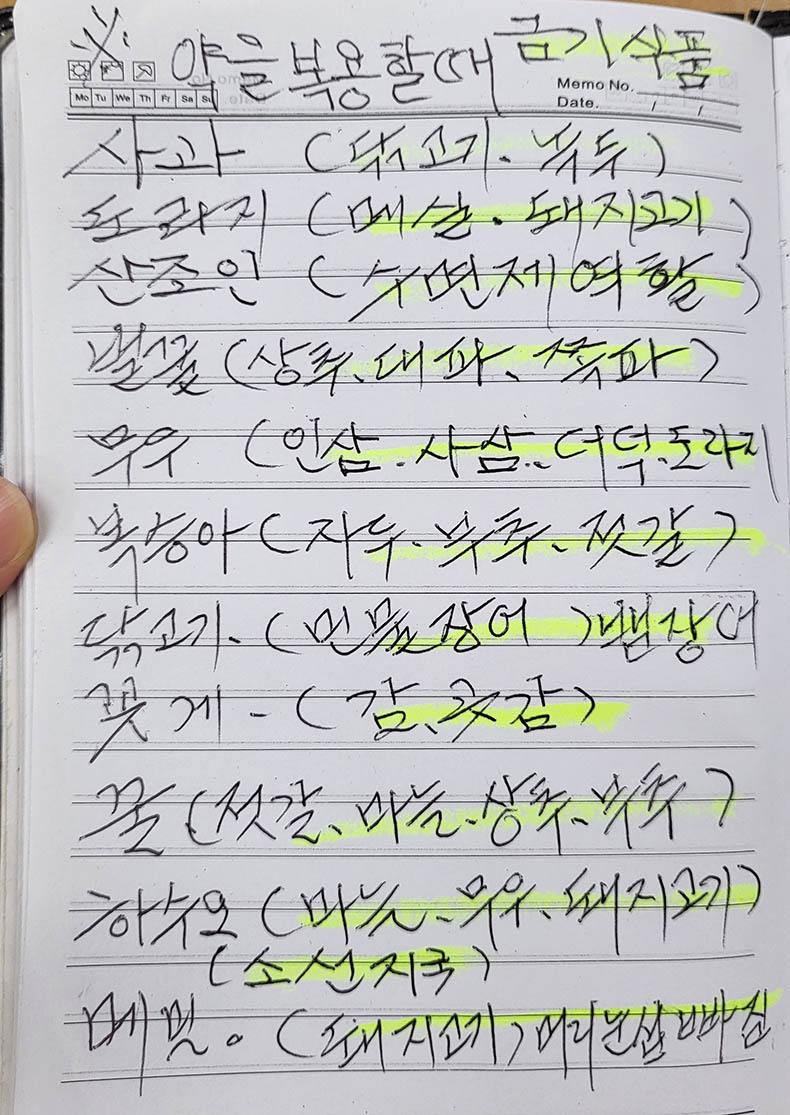 ※ 약을 복용할때 금기식품
Memo No.
Date.
Mo Tu We Th Fr Sa Su
사과 (닭고기. 녹두)
도라지 (매실. 돼지고기)
산조인 (수면제역할)
벌꿀 (상추. 대파. 쪽파)
무우 (인삼. 사삼.. 더덕. 도라지
복숭아 (자두. 부추. 젓갈)
닭고기- (민물장어) 뱀장어
꽃게 - (감. 곳감)
꿀 (젓갈. 마늘. 상추. 부추)
하수오 (마늘. 무우. 돼지고기)
(소선지국)
메밀. (돼지고기) 머리눈섭빠짐